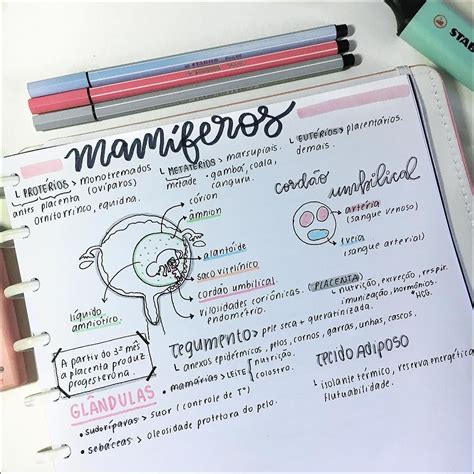 STABILO
mamíferos
↳ PROTÉRIOS > monotremados
(ovíparos)
antes placenta
ornitorrinco, equidna.
↳ METATÉRIOS > marsupiais.
metade • gambá, coala,
canguru.
↳ EUTÉRIOS > placentários.
demais.
cordão umbilical
córion
âmnion
alantóide
saco vitelínico
cordão umbilical
vilosidades coriônicas.
endométrio.
líquido
amniótico
artéria
(sangue venoso)
1 veia
(sangue arterial)
PLACENTA
↳ nutrição, excreção, respir.
imunização, hormônios.
*HCG.
A partir do 3º mês
a placenta produz
progesterona.
Tegumento > pele seca + queratinizada.
↳ anexos epidérmicos, pelos, cornos, garras, unhas, cascos.
• mamárias > LEITE
nutrição.
colostro.
GLÂNDULAS
• sudoríparas > suor (controle de Tº)
• sebáceas > oleosidade protetora do pelo.
Tecido ADIPOSO
↳ isolante térmico, reserva energética
flutuabilidade.